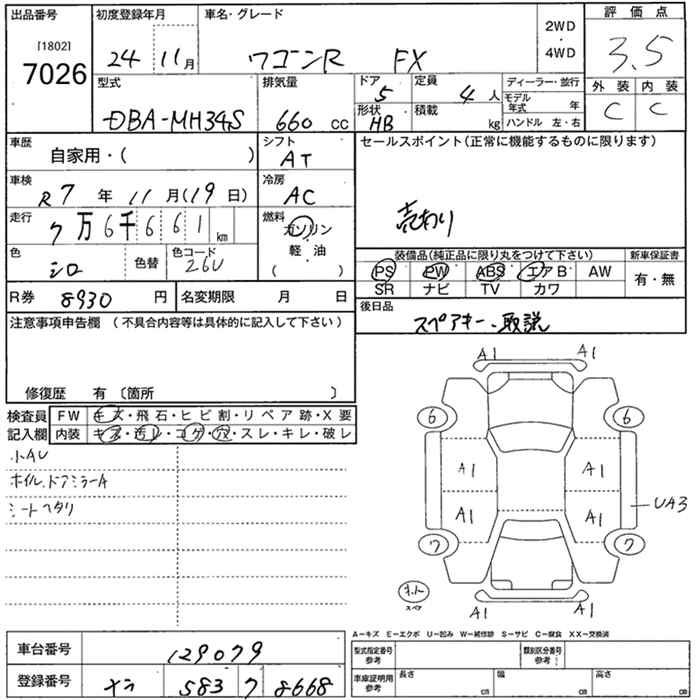 出品番号
[1802]
7026
初度登録年月
24 11月
車名・グレード
ワゴンR FX
2WD
・
4WD
評価点
3.5
外装 内装
C C
型式
DBA-MH34S
排気量
660 cc
ドア
5
形状
HB
定員
4人
積載
kg
ディーラー・旅行
モデル年式 年
ハンドル 左・右
車歴
自家用・( )
シフト
AT
車検
R7年 11月(19日)
冷房
AC
走行
7万6千661km
燃料
ガソリン
・
軽・油
( )
色
シロ
色替
色コード
26U
R券 8930円
名変期限 月 日
セールスポイント(正常に機能するものに限ります)
売わり
装備品(純正品に限り丸をつけて下さい)
PS PW ABS エアB AW
SR ナビ TV カワ
新車保証書
有・無
後日品
スペアキー、取説
注意事項申告欄(不具合内容等は具体的に記入して下さい)
修復歴 有〔箇所 〕
検査員記入欄
FW キズ・飛石・ヒビ割・リペア跡・X要
内装 キズ・汚レ・コゲ・穴・スレ・キレ・破レ
小AU
ホイル、ドアミラーA
シートヘタリ
A1 A1
6 6
A1 A1
A1 A1
UA3
7 7
スペア
A1 A1
A-キズ E-エクボ U-凹み W-補修跡 S-サビ C-腐食 XX-交換済
車台番号
129079
登録番号
583 8668
型式指定番号参考
類別区分番号参考
車庫証明用参考
長さ cm
幅 cm
高さ cm